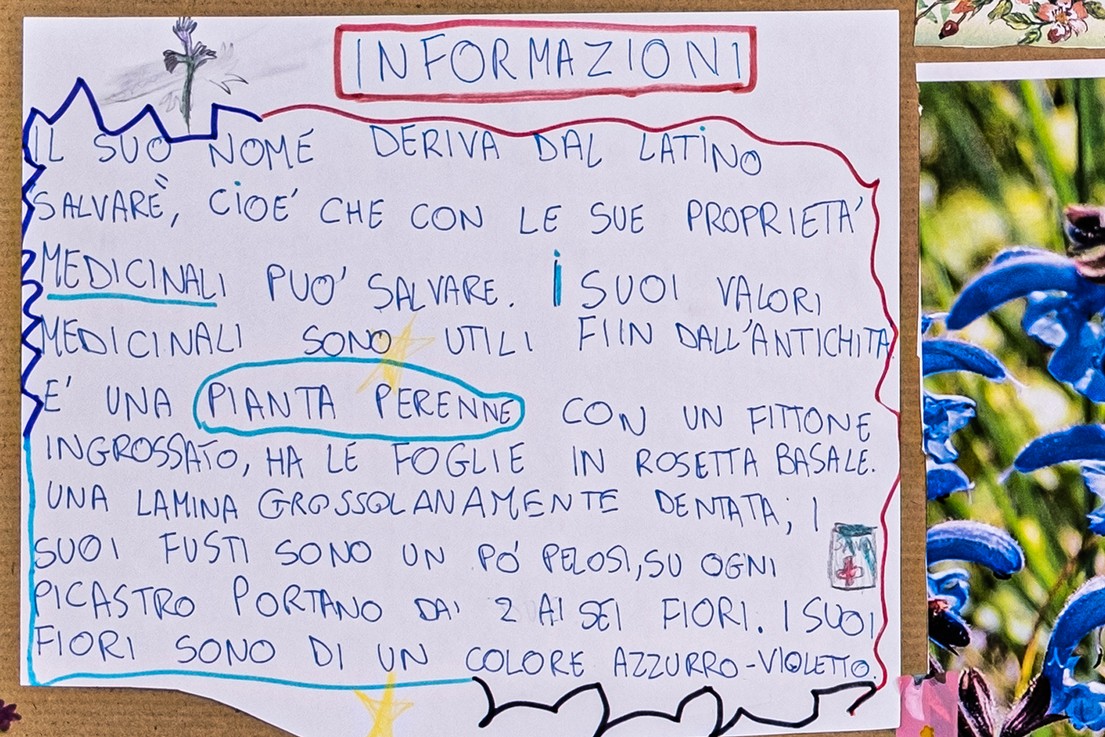 INFORMAZIONI
IL SUO NOME DERIVA DAL LATINO
"SALVARE", CIOE' CHE CON LE SUE PROPRIETA'
MEDICINALI PUO' SALVARE. I SUOI VALORI
MEDICINALI SONO UTILI FIIN DALL'ANTICHITA
E' UNA PIANTA PERENNE CON UN FITTONE
INGROSSATO, HA LE FOGLIE IN ROSETTA BASALE.
UNA LAMINA GROSSOLANAMENTE DENTATA; I
SUOI FUSTI SONO UN PO' PELOSI, SU OGNI
PICASTRO PORTANO DAI 2 AI SEI FIORI. I SUOI
FIORI SONO DI UN COLORE AZZURRO-VIOLETTO.